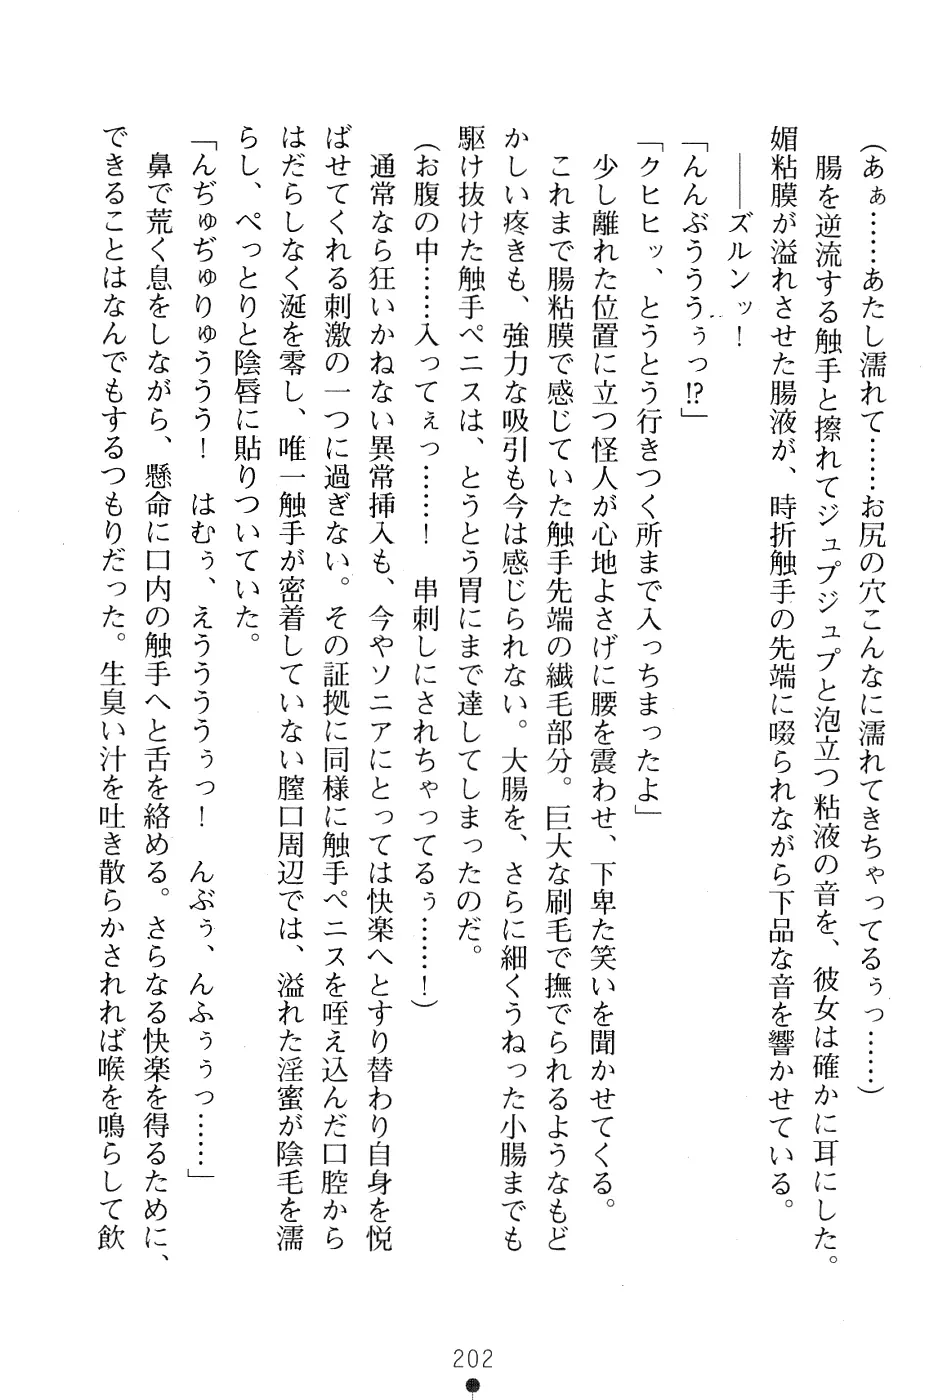 (あぁ……あたし濡れて……お尻の穴こんなに濡れてきちゃってるぅっ……)
腸を逆流する触手と擦れてジュプジュプと泡立つ粘液の音を、彼女は確かに耳にした。
媚粘膜が溢れさせた腸液が、時折触手の先端に啜られながら下品な音を響かせている。
――ズルンッ!
「んんぶううぅっ!?」
「クヒヒッ、とうとう行きつく所まで入っちまったよ」
少し離れた位置に立つ怪人が心地よさげに腰を震わせ、下卑た笑いを聞かせてくる。
これまで腸粘膜で感じていた触手先端の繊毛部分。巨大な刷毛で撫でられるようなもど
かしい疼きも、強力な吸引も今は感じられない。大腸を、さらに細くうねった小腸までも
駆け抜けた触手ペニスは、とうとう胃にまで達してしまったのだ。
(お腹の中……入ってぇっ……! 串刺しにされちゃってるぅ……!)
通常なら狂いかねない異常挿入も、今やソニアにとっては快楽へとすり替わり自身を悦
ばせてくれる刺激の一つに過ぎない。その証拠に同様に触手ペニスを咥え込んだ口腔から
はだらしなく涎を零し、唯一触手が密着していない膣口周辺では、溢れた淫蜜が陰毛を濡
らし、ぺっとりと陰唇に貼りついていた。
「んぢゅぢゅりゅううう! はむぅ、えうううぅっ! んぶぅ、んふぅぅっ……」
鼻で荒く息をしながら、懸命に口内の触手へと舌を絡める。さらなる快楽を得るために、
できることはなんでもするつもりだった。生臭い汁を吐き散らかされれば喉を鳴らして飲
202